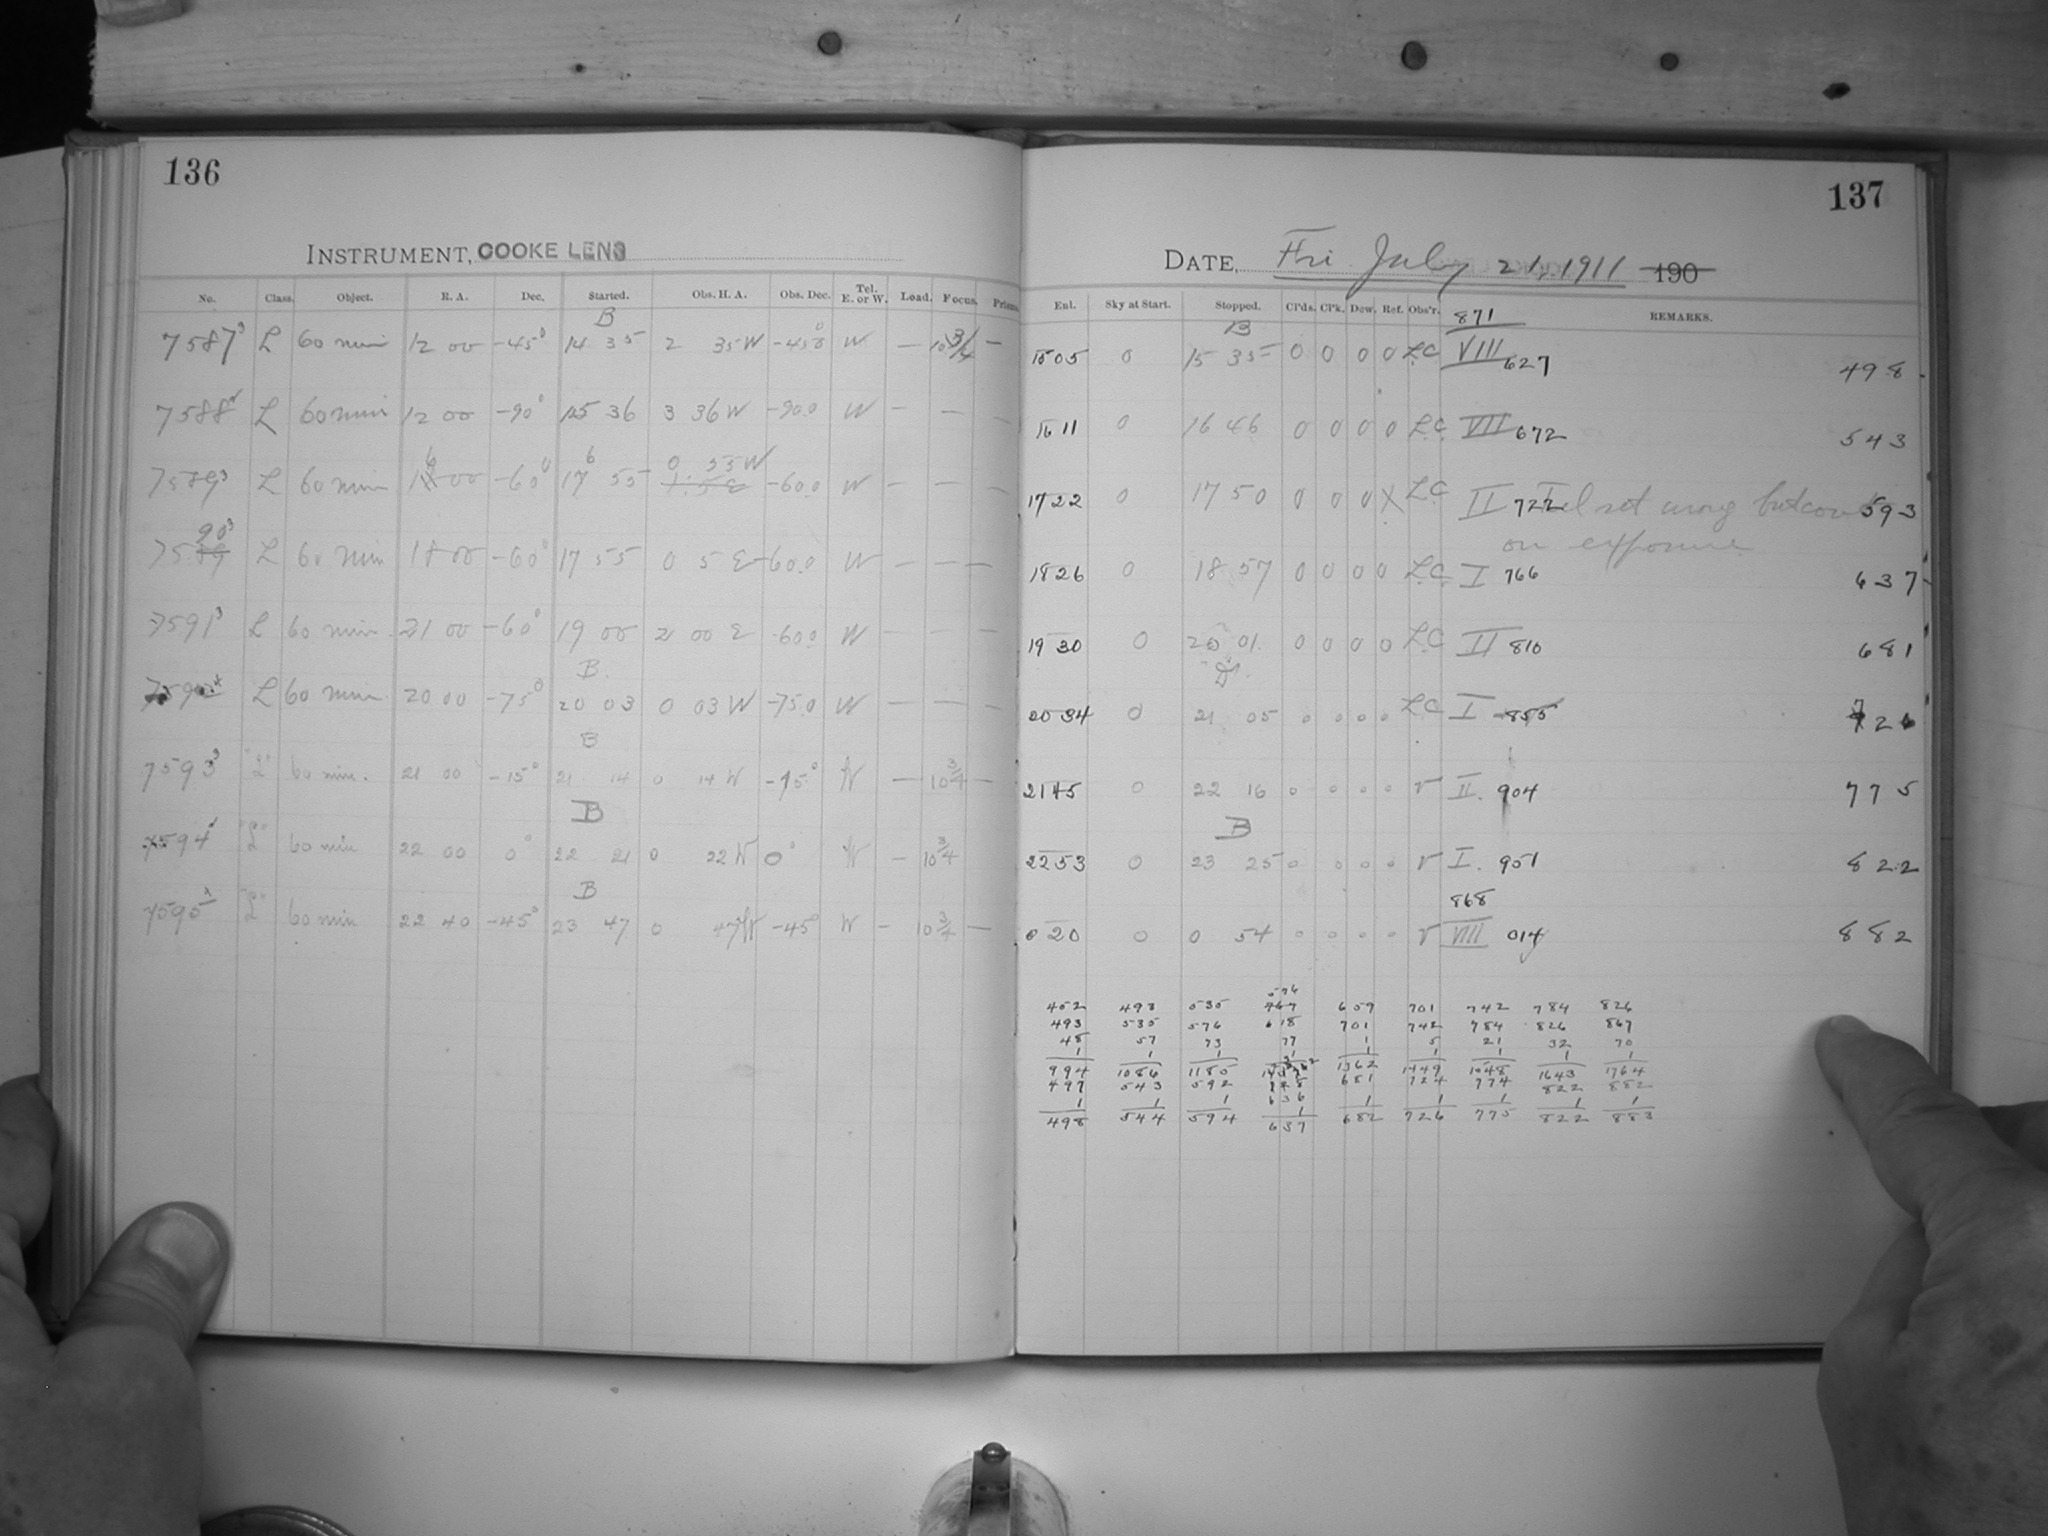 136
INSTRUMENT, COOKE LENS
No. Class. Object. R. A. Dec. Started. Obs. H. A. Obs. Dec. Tel. E. or W. Load. Focus. Prisms.
B
7587³ L 60 min 12 00 -45° 14 35 2 35 W -45.0 W — 10 3/4 —
7588 L 60 min 12 00 -90° 15 36 3 36 W -90.0 W — — —
6 6 0 55 W
7589³ L 60 min 18 00 -60° 17 55 1. 5 E -60.0 W — — —
90³
7589 L 60 min 18 00 -60° 17 55 0 5 E -60.0 W — — —
7591³ L 60 min. 21 00 -60° 19 00 2 00 E -60.0 W — — —
B.
7592 L 60 min. 20 00 -75° 20 03 0 03 W -75.0 W — — —
B
7593³ "L" 60 min. 21 00 -15° 21 14 0 14 W -15° W — 10 3/4 —
B
7594 "L" 60 min 22 00 0° 22 21 0 22 W 0° W — 10 3/4
B
7595 "L" 60 min 22 40 -45° 23 47 0 47 W -45° W — 10 3/4 —
137
DATE, Fri July 21, 1911 190
Enl. Sky at Start. Stopped. Cl'ds. Cl'k. Dew. Ref. Obs'r. REMARKS.
B 871
15 05 0 15 35 0 0 0 0 LC VIII 627 498
16 11 0 16 46 0 0 0 0 L.C. VII 672 543
17 22 0 17 50 0 0 0 X LC II 722 Tel set wrong but 593
on exposure
18 26 0 18 57 0 0 0 0 L.C. I 766 637
19 30 0 20 01. 0 0 0 0 LC II 810 681
20 34 0 21 05 0 0 0 0 LC I 855 726
21 45 0 22 16 0 0 0 0 V II. 904 775
B
22 53 0 23 25 0 0 0 0 V I. 951 822
868
0 20 0 0 54 0 0 0 0 V VIII 014 882
576
452 493 535 767 659 701 742 784 826
493 535 576 618 701 742 784 826 867
48 57 73 77 1 5 21 32 70
1 1 1 1 1 1 1 1 1
994 1086 1185 1362 1449 1548 1643 1764
497 543 592 681 724 774 822 882
1 1 1 636 1 1 1 1 1
498 544 594 637 682 726 775 822 883